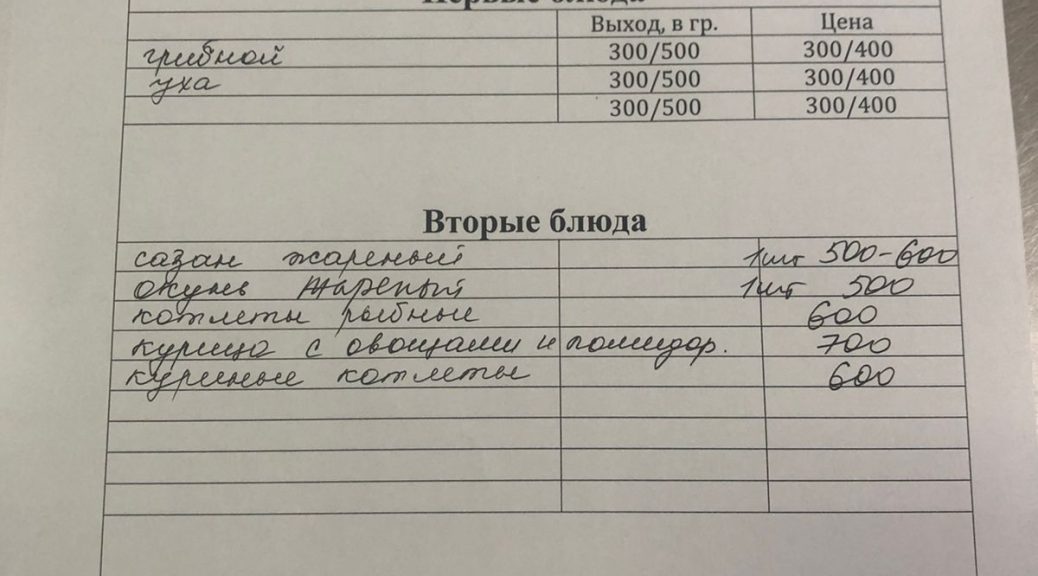 Первые блюда
Выход, в гр. Цена
грибной 300/500 300/400
уха 300/500 300/400
300/500 300/400
Вторые блюда
сазан жареный 1шт 500-600
окунь жареный 1шт 500
котлеты рыбные 600
курица с овощами и помидор. 700
куриные котлеты 600